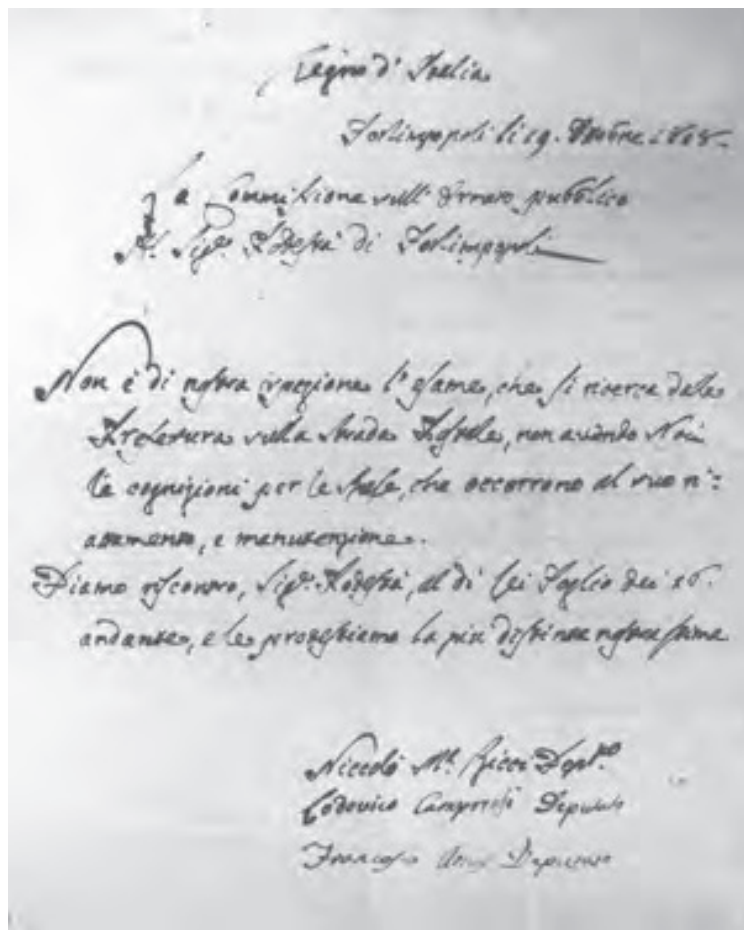 Regno d' Italia
Forlimpopoli li 19. 1808.
La Commissione sull' Ornato pubblico
Al Sigr. Podestà di Forlimpopoli
Non è di nostra ispezione l' esame, che si ricerca dalla
Prefettura sulla strada Postale, non avendo Noi
le cognizioni per le spese, che occorrono al suo ri=
attamento, e manutenzione.
Diamo riscontro, Sigr. Podestà, al di lei Foglio dei 16.
andante, e le protestiamo la più distinta nostra stima
Niccolò Ma. Ricci Depto.
Lodovico Deputato
Francesco Deputato